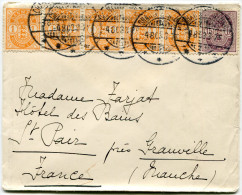 Madame Zarjat
Hôtel des Bains
St Pair près Granville
France (Manche)